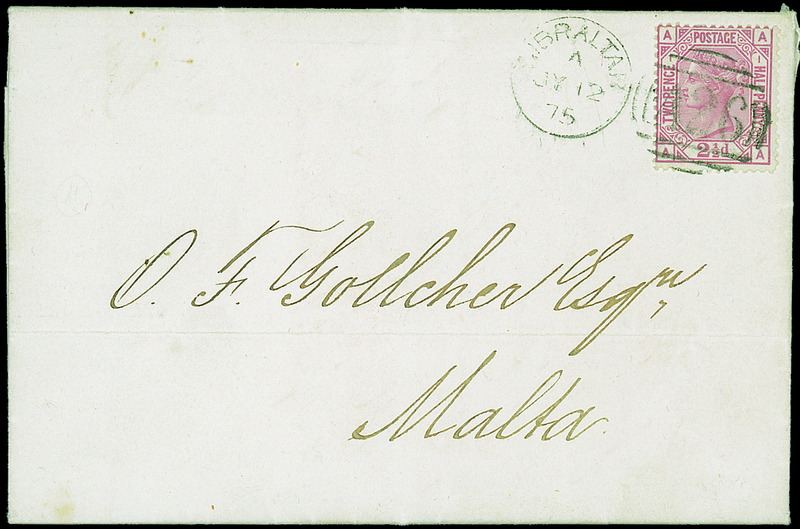 GIBRALTAR
A
JY 12
75
A POSTAGE A
TWO-PENCE
HALF PENNY
A 2½d. A
O. F. Gollcher Esqre
Malta